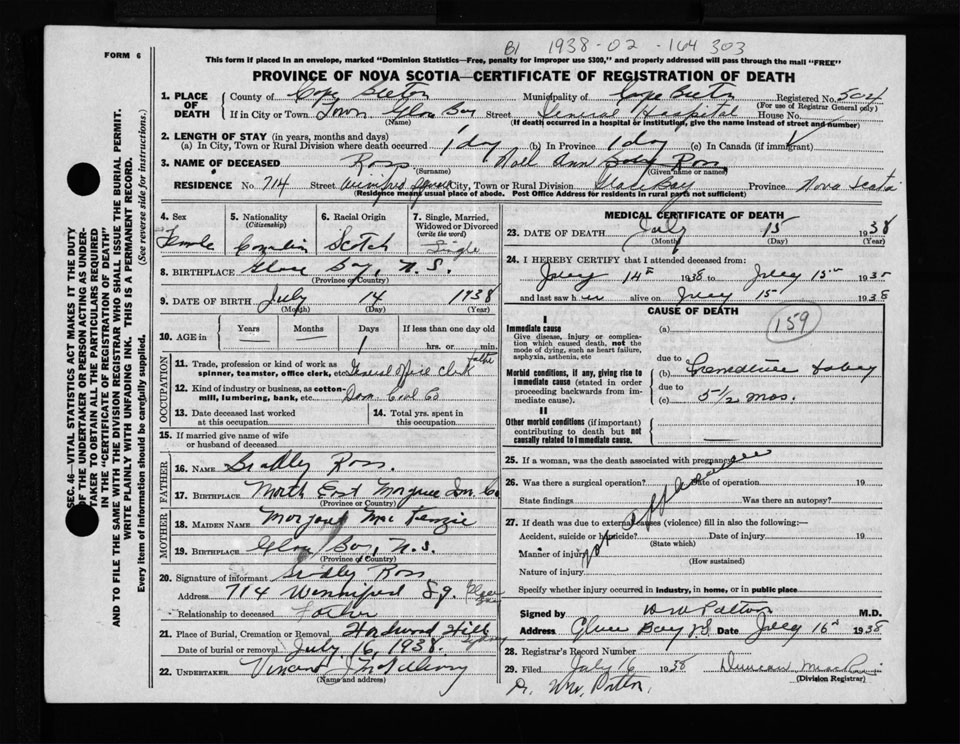 B1 1938-02-164303
FORM 6
This form if placed in an envelope, marked "Dominion Statistics—Free, penalty for improper use $300," and properly addressed will pass through the mail "FREE"
PROVINCE OF NOVA SCOTIA—CERTIFICATE OF REGISTRATION OF DEATH
1. PLACE OF DEATH
County of Cape Breton Municipality of Cape Breton Registered No.
(For use of Registrar General only)
If in City or Town Town Glace Bay Street General Hospital House No.
(Name) (If death occurred in a hospital or institution, give the name instead of street and number)
2. LENGTH OF STAY (in years, months and days)
(a) In City, Town or Rural Division where death occurred 1 day (b) In Province 1 day (c) In Canada (if immigrant)
3. NAME OF DECEASED Ross Noel Ann Baby Ross
(Surname) (Given name or names)
RESIDENCE No. 714 Street Winnipeg Square City, Town or Rural Division Glace Bay Province Nova Scotia
(Residence means usual place of abode. Post Office Address for residents in rural parts not sufficient)
4. Sex 5. Nationality (Citizenship) 6. Racial Origin 7. Single, Married, Widowed or Divorced (write the word)
Female Canadian Scotch Single
8. BIRTHPLACE Glace Bay, N.S.
(Province or Country)
9. DATE OF BIRTH July 14 1938
(Month) (Day) (Year)
10. AGE in Years Months Days If less than one day
— — 1 hrs. or min.
OCCUPATION
11. Trade, profession or kind of work as spinner, teamster, office clerk, etc. General Office Clerk father
12. Kind of industry or business, as cotton-mill, lumbering, bank, etc. Dom. Coal Co
13. Date deceased last worked at this occupation
14. Total yrs. spent in this occupation
15. If married give name of wife or husband of deceased
FATHER
16. NAME Bradley Ross.
17. BIRTHPLACE North East Margaree Inv. Co
(Province or Country)
MOTHER
18. MAIDEN NAME Margaret MacKenzie
19. BIRTHPLACE Glace Bay, N.S.
(Province or Country)
20. Signature of informant Bradley Ross
Address 714 Winnipeg Sq. Glace Bay
Relationship to deceased Father
21. Place of Burial, Cremation or Removal Hardwood Hill Sydney
Date of burial or removal July 16, 1938.
22. UNDERTAKER Vincent J.
(Name and address)
MEDICAL CERTIFICATE OF DEATH
23. DATE OF DEATH July 15 1938
(Month) (Day) (Year)
24. I HEREBY CERTIFY that I attended deceased from:
July 14th 1938 to July 15th 1938
and last saw her alive on July 15 1938
CAUSE OF DEATH
159
I
Immediate cause
Give disease, injury or complication which caused death, not the mode of dying, such as heart failure, asphyxia, asthenia, etc
(a)
due to
Morbid conditions, if any, giving rise to immediate cause (stated in order proceeding backwards from immediate cause).
(b) Premature baby
due to
(c) 5 1/2 mos.
II
Other morbid conditions (if important) contributing to death but not causally related to immediate cause.
25. If a woman, was the death associated with pregnancy
26. Was there a surgical operation? Date of operation 19
State findings Was there an autopsy?
27. If death was due to external causes (violence) fill in also the following:—
Accident, suicide or homicide? Date of injury 19
(State which)
Manner of injury
(How sustained)
Nature of injury
Specify whether injury occurred in industry, in home, or in public place
not applicable
Signed by W W Patton M.D.
Address Glace Bay N.S. Date July 16th 1938
28. Registrar's Record Number
29. Filed July 16 1938 Duncan
(Division Registrar)
Dr. Wm. Patton.
SEC. 46—VITAL STATISTICS ACT MAKES IT THE DUTY OF THE UNDERTAKER OR PERSON ACTING AS UNDERTAKER TO OBTAIN ALL THE PARTICULARS REQUIRED IN THE "CERTIFICATE OF REGISTRATION OF DEATH" AND TO FILE THE SAME WITH THE DIVISION REGISTRAR WHO SHALL ISSUE THE BURIAL PERMIT.
WRITE PLAINLY WITH UNFADING INK. THIS IS A PERMANENT RECORD.
Every item of information should be carefully supplied. (See reverse side for instructions.)